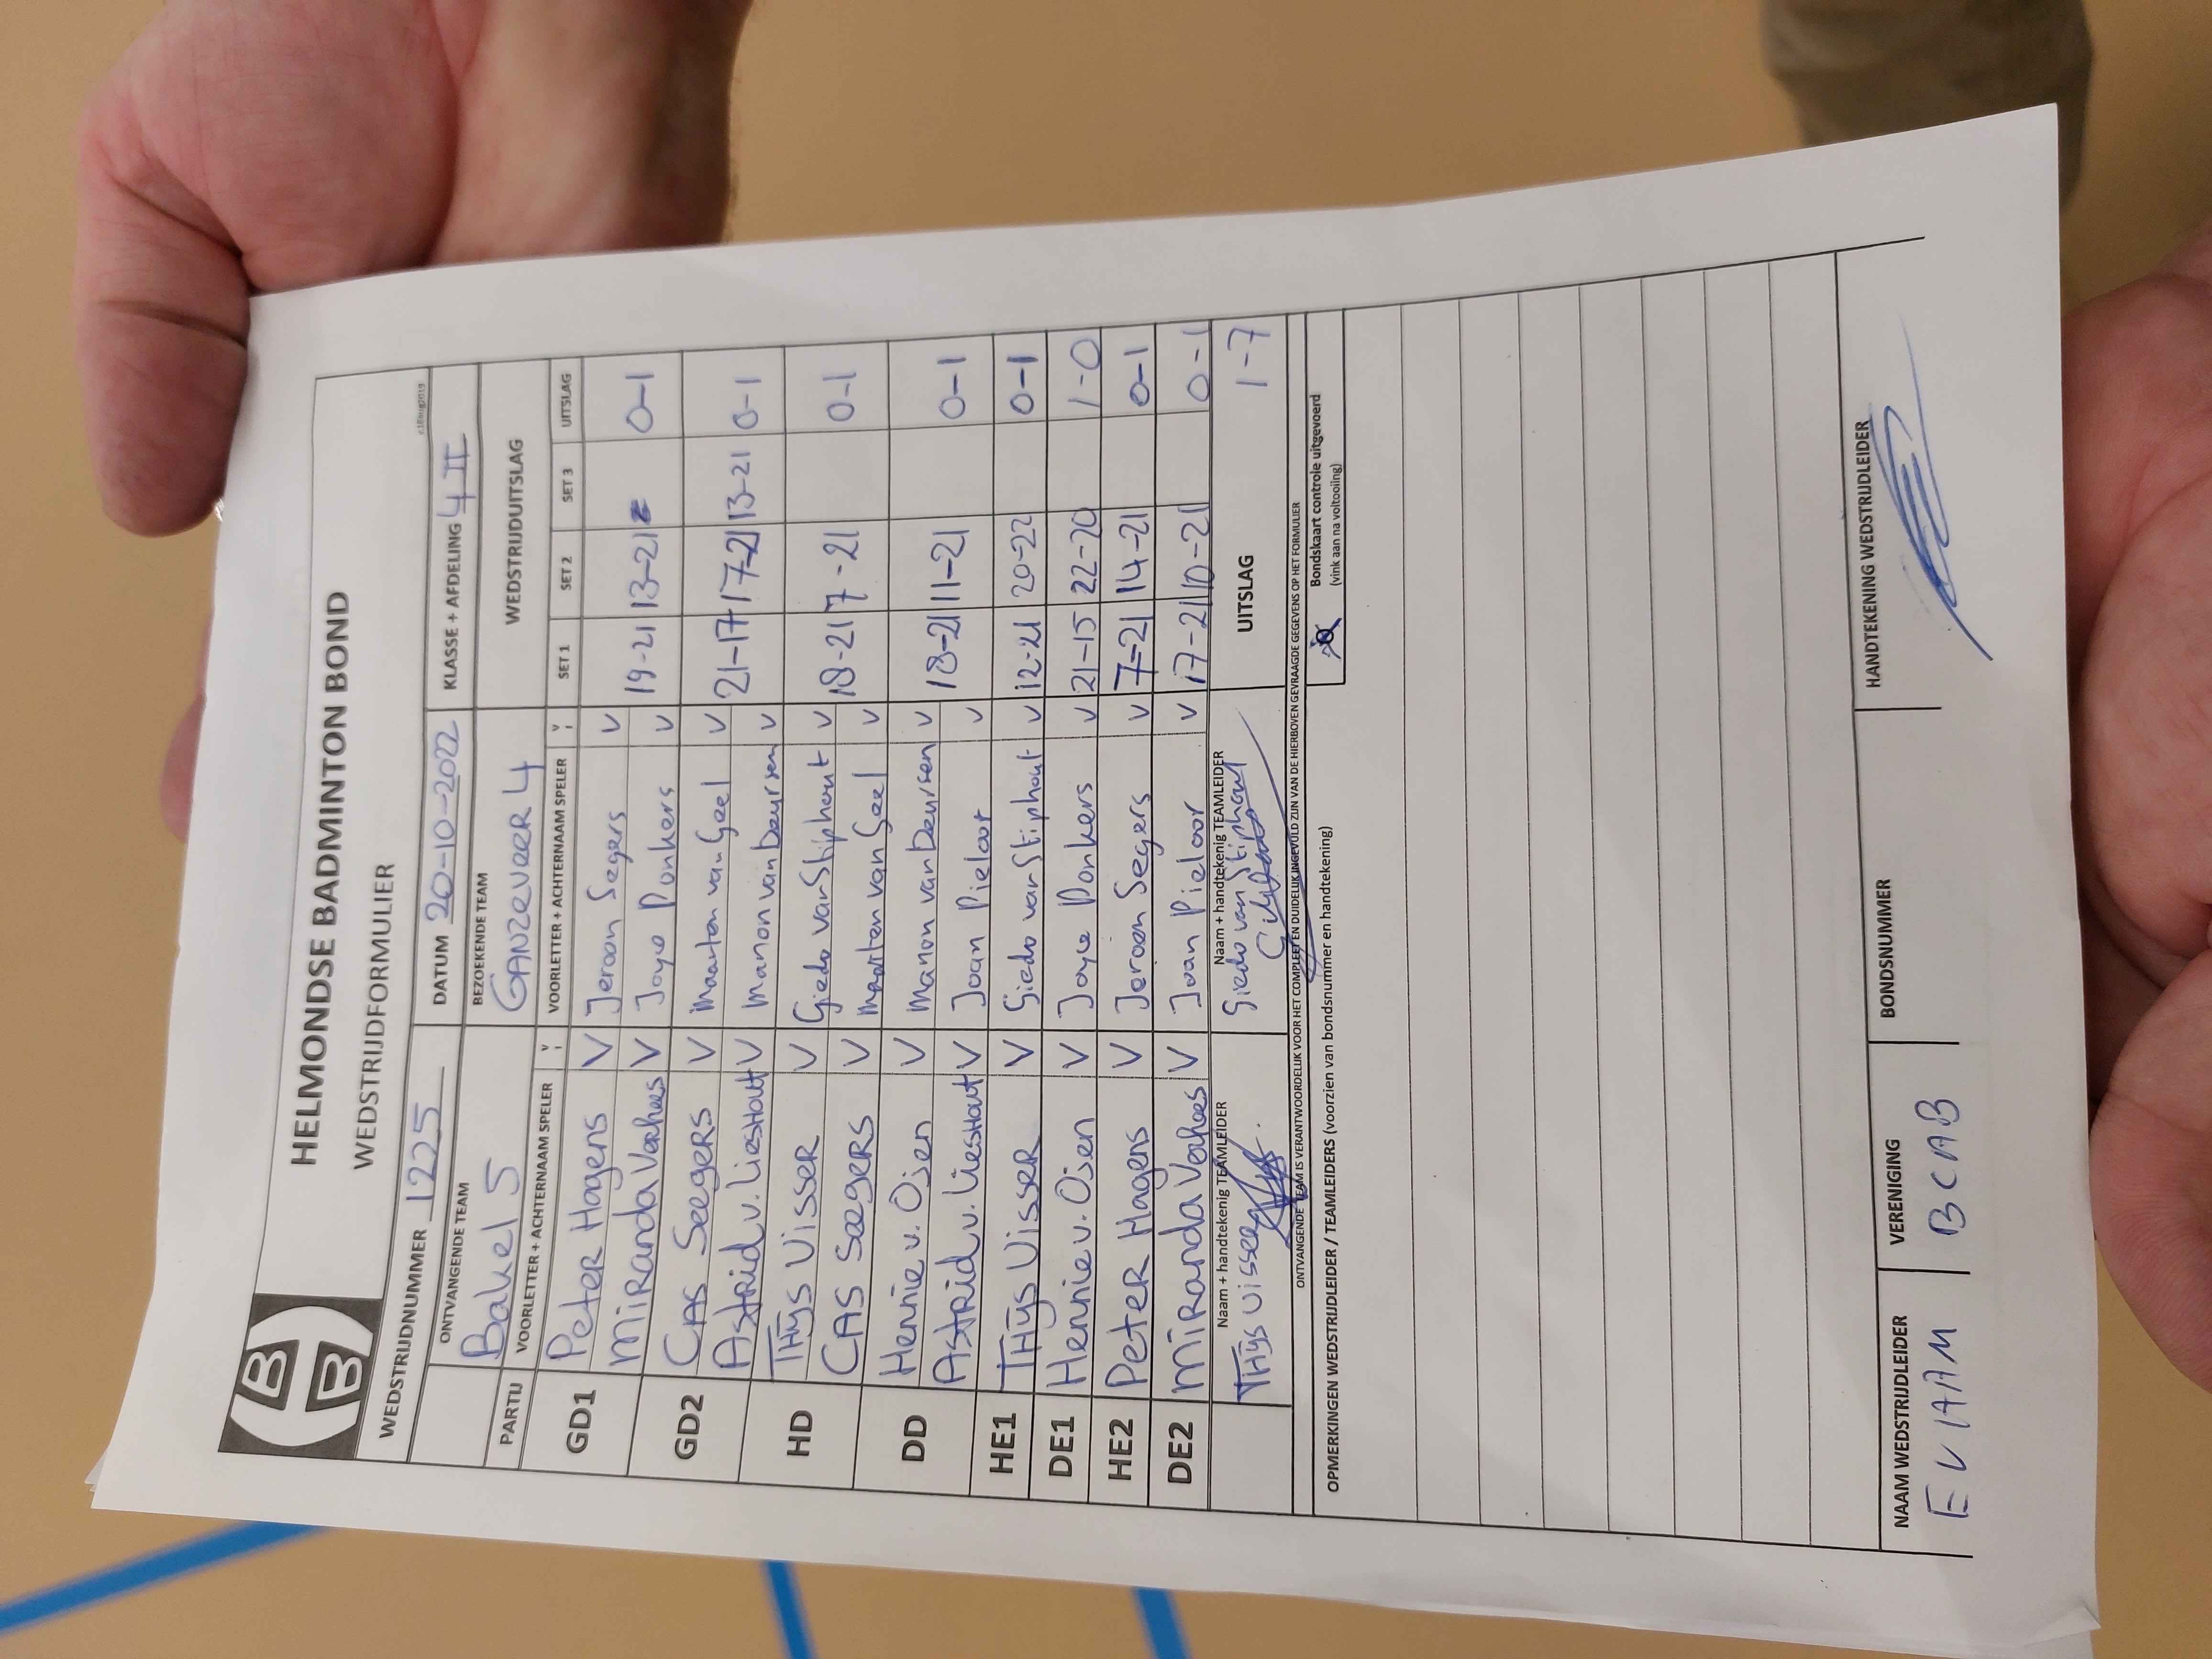 HELMONDSE BADMINTON BOND
WEDSTRIJDFORMULIER
WEDSTRIJDNUMMER 1225 DATUM 20-10-2022 KLASSE + AFDELING 4 II
ONTVANGENDE TEAM BEZOEKENDE TEAM
Bakel 5 GANZEVEER 4 WEDSTRIJDUITSLAG
PARTIJ VOORLETTER + ACHTERNAAM SPELER V VOORLETTER + ACHTERNAAM SPELER V SET 1 SET 2 SET 3 UITSLAG
GD1 Peter Hagens V Jeroen Segers V
Miranda Verhees V Joyce Donkers V 19-21 13-21 0-1
GD2 CAS Seegers V Maarten van Geel V
Astrid v. Lieshout V Manon van Deursen V 21-17 17-21 13-21 0-1
HD THijs Visser V Giedo van Stiphout V
CAS Seegers V Maarten van Geel V 18-21 7-21 0-1
DD Hennie v. Osen V Manon van Deursen V
Astrid v. Lieshout V Joan Pieloor V 18-21 11-21 0-1
HE1 THijs Visser V Giedo van Stiphout V 12-21 20-22 0-1
DE1 Hennie v. Osen V Joyce Donkers V 21-15 22-20 1-0
HE2 Peter Hagens V Jeroen Segers V 7-21 14-21 0-1
DE2 Miranda Verhees V Joan Pieloor V 17-21 10-21 0-1
Naam + handtekenig TEAMLEIDER Naam + handtekenig TEAMLEIDER UITSLAG 1-7
THijs Visser Giedo van Stiphout
ONTVANGENDE TEAM IS VERANTWOORDELIJK VOOR HET COMPLEET EN DUIDELIJK INGEVULD ZIJN VAN DE HIERBOVEN GEVRAAGDE GEGEVENS OP HET FORMULIER
OPMERKINGEN WEDSTRIJDLEIDER / TEAMLEIDERS (voorzien van bondsnummer en handtekening)
Bondskaart controle uitgevoerd
(vink aan na voltooiing)
NAAM WEDSTRIJDLEIDER VERENIGING BONDSNUMMER HANDTEKENING WEDSTRIJDLEIDER
BCAB